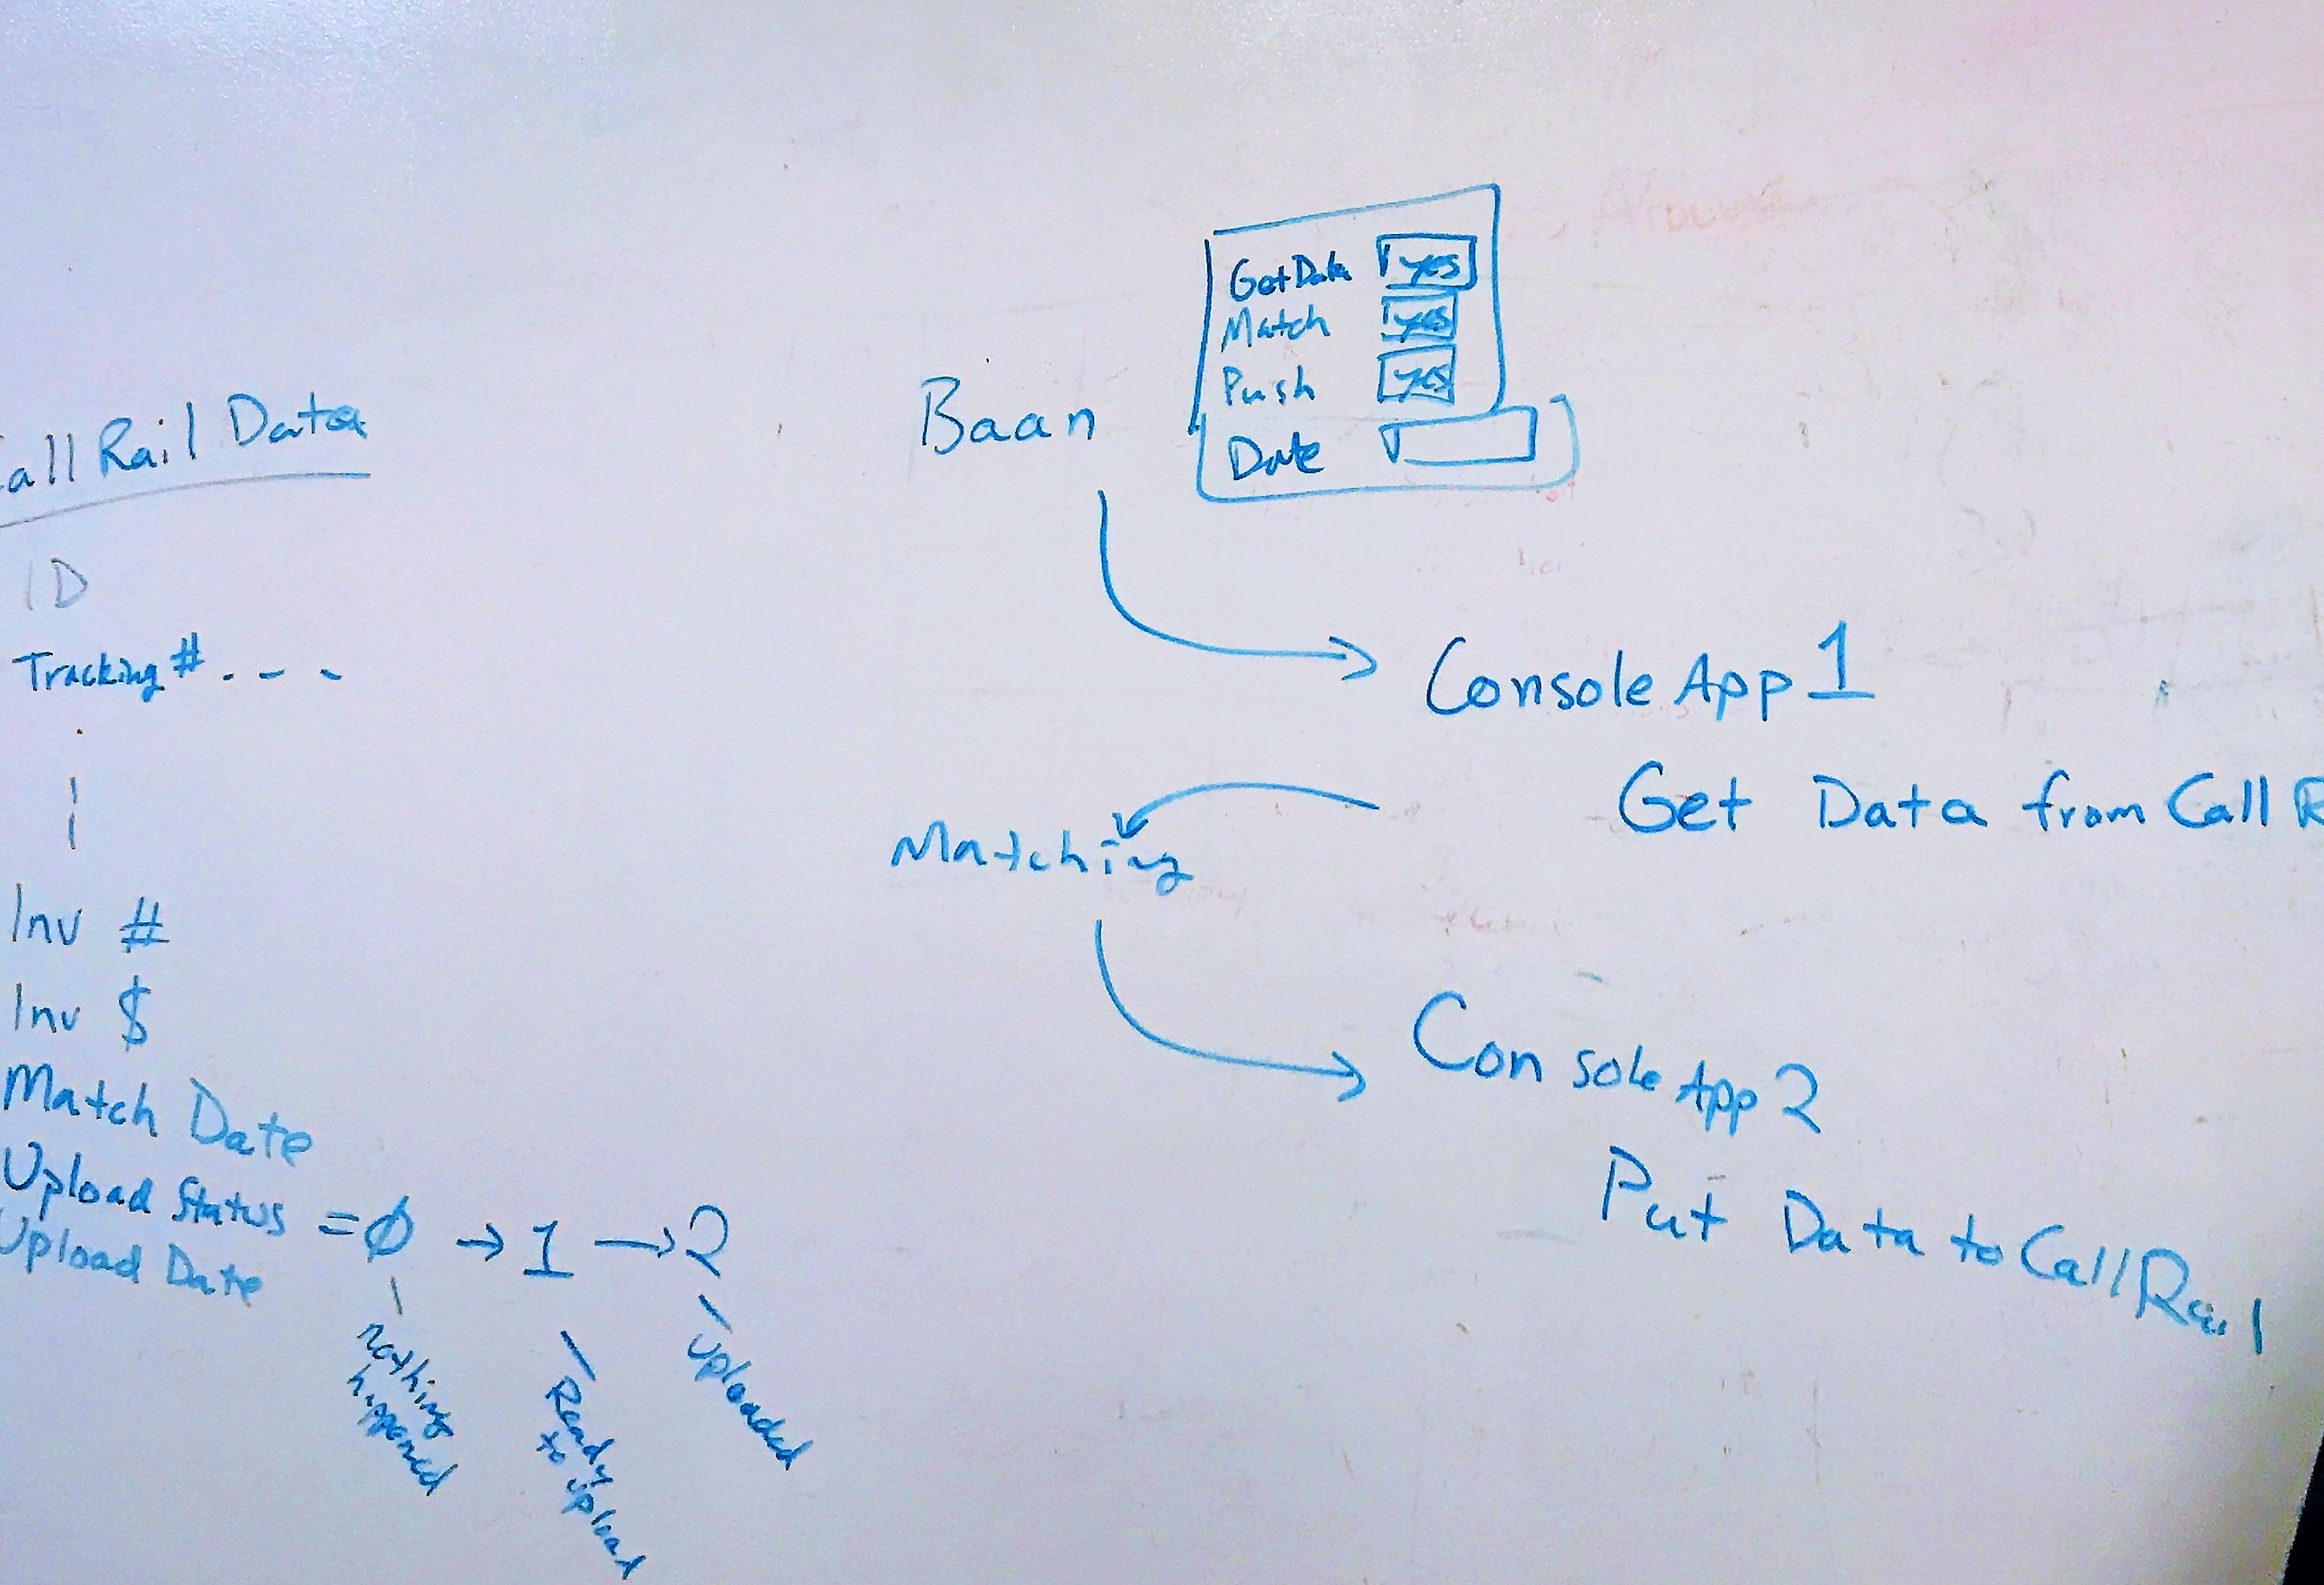 all Rail Data
ID
Tracking # . - -
Inv #
Inv $
Match Date
Upload Status = Ø → 1 → 2
Upload Date
Nothing
happened
Ready
to upload
uploaded
Baan
Get Data yes
Match yes
Push yes
Date
Console App 1
Get Data from Call R
Matching
Console App 2
Put Data to Call Rail